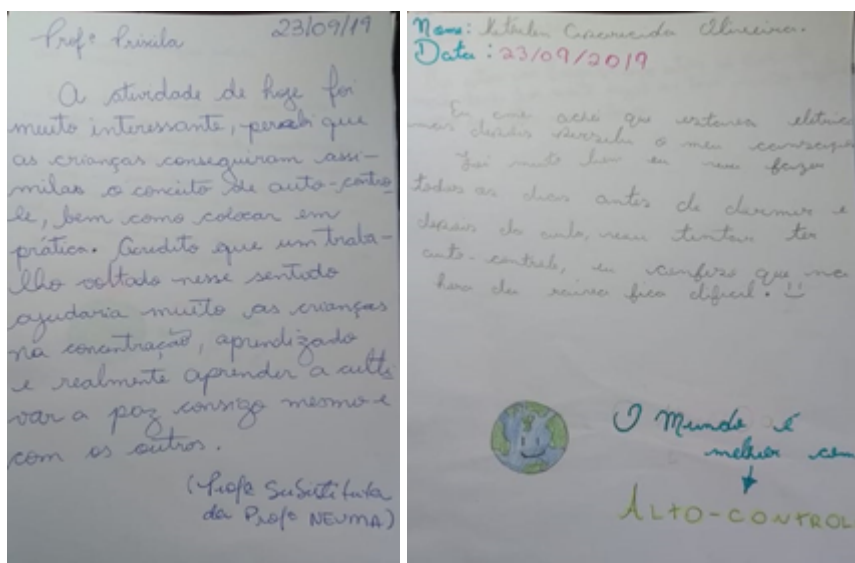 Profª Prixila 23/09/19
A atividade de hoje foi
muito interessante, percebi que
as crianças conseguiram assi-
milar o conceito de auto-contro
le, bem como colocar em
prática. Acredito que um traba-
lho voltado nesse sentido
ajudaria muito as crianças
na concentração, aprendizado
e realmente aprender a culti
var a paz consigo mesmo e
com os outros.
(Profª Substituta
da Profª NEUMA)
Nome: Oliveira.
Data: 23/09/2019
Eu me achei que estava
mas depois o meu
Foi muito bom eu vou fazer
todos os dias antes de dormir e
depois da aula, vou tentar ter
auto-controle, eu confesso que na
hora da raiva fica difícil.
O Mundo é
melhor com
ALTO-CONTROL